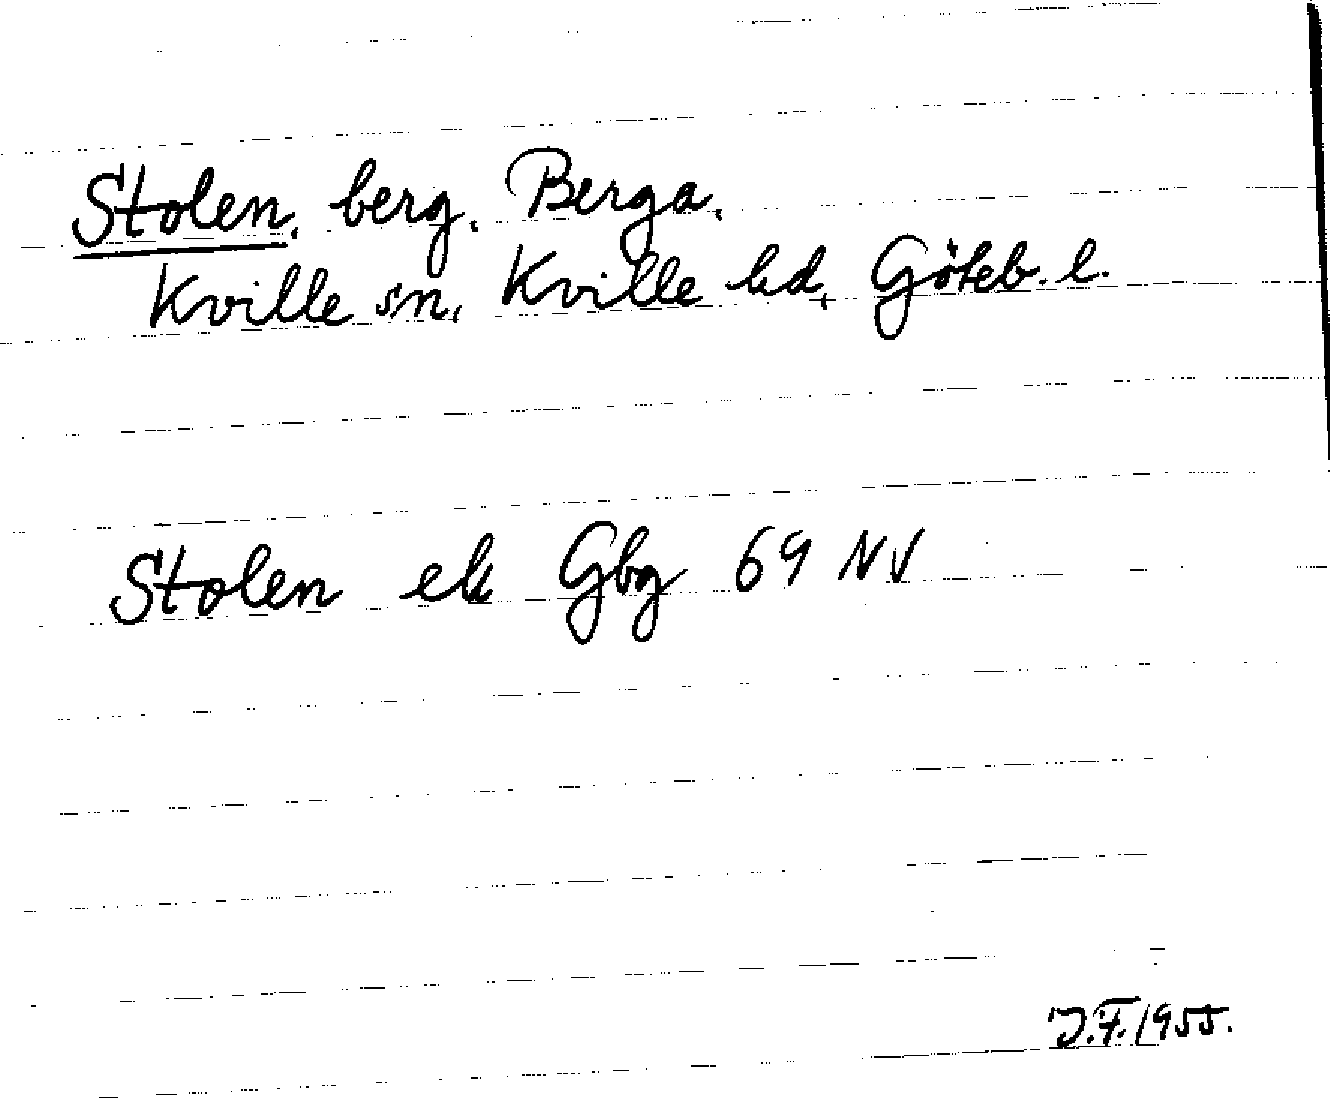 Stolen, berg, Berga,
Kville sn, Kville hd, Göteb. l.
Stolen ek Gbg 69 NV
J.F. 1955.